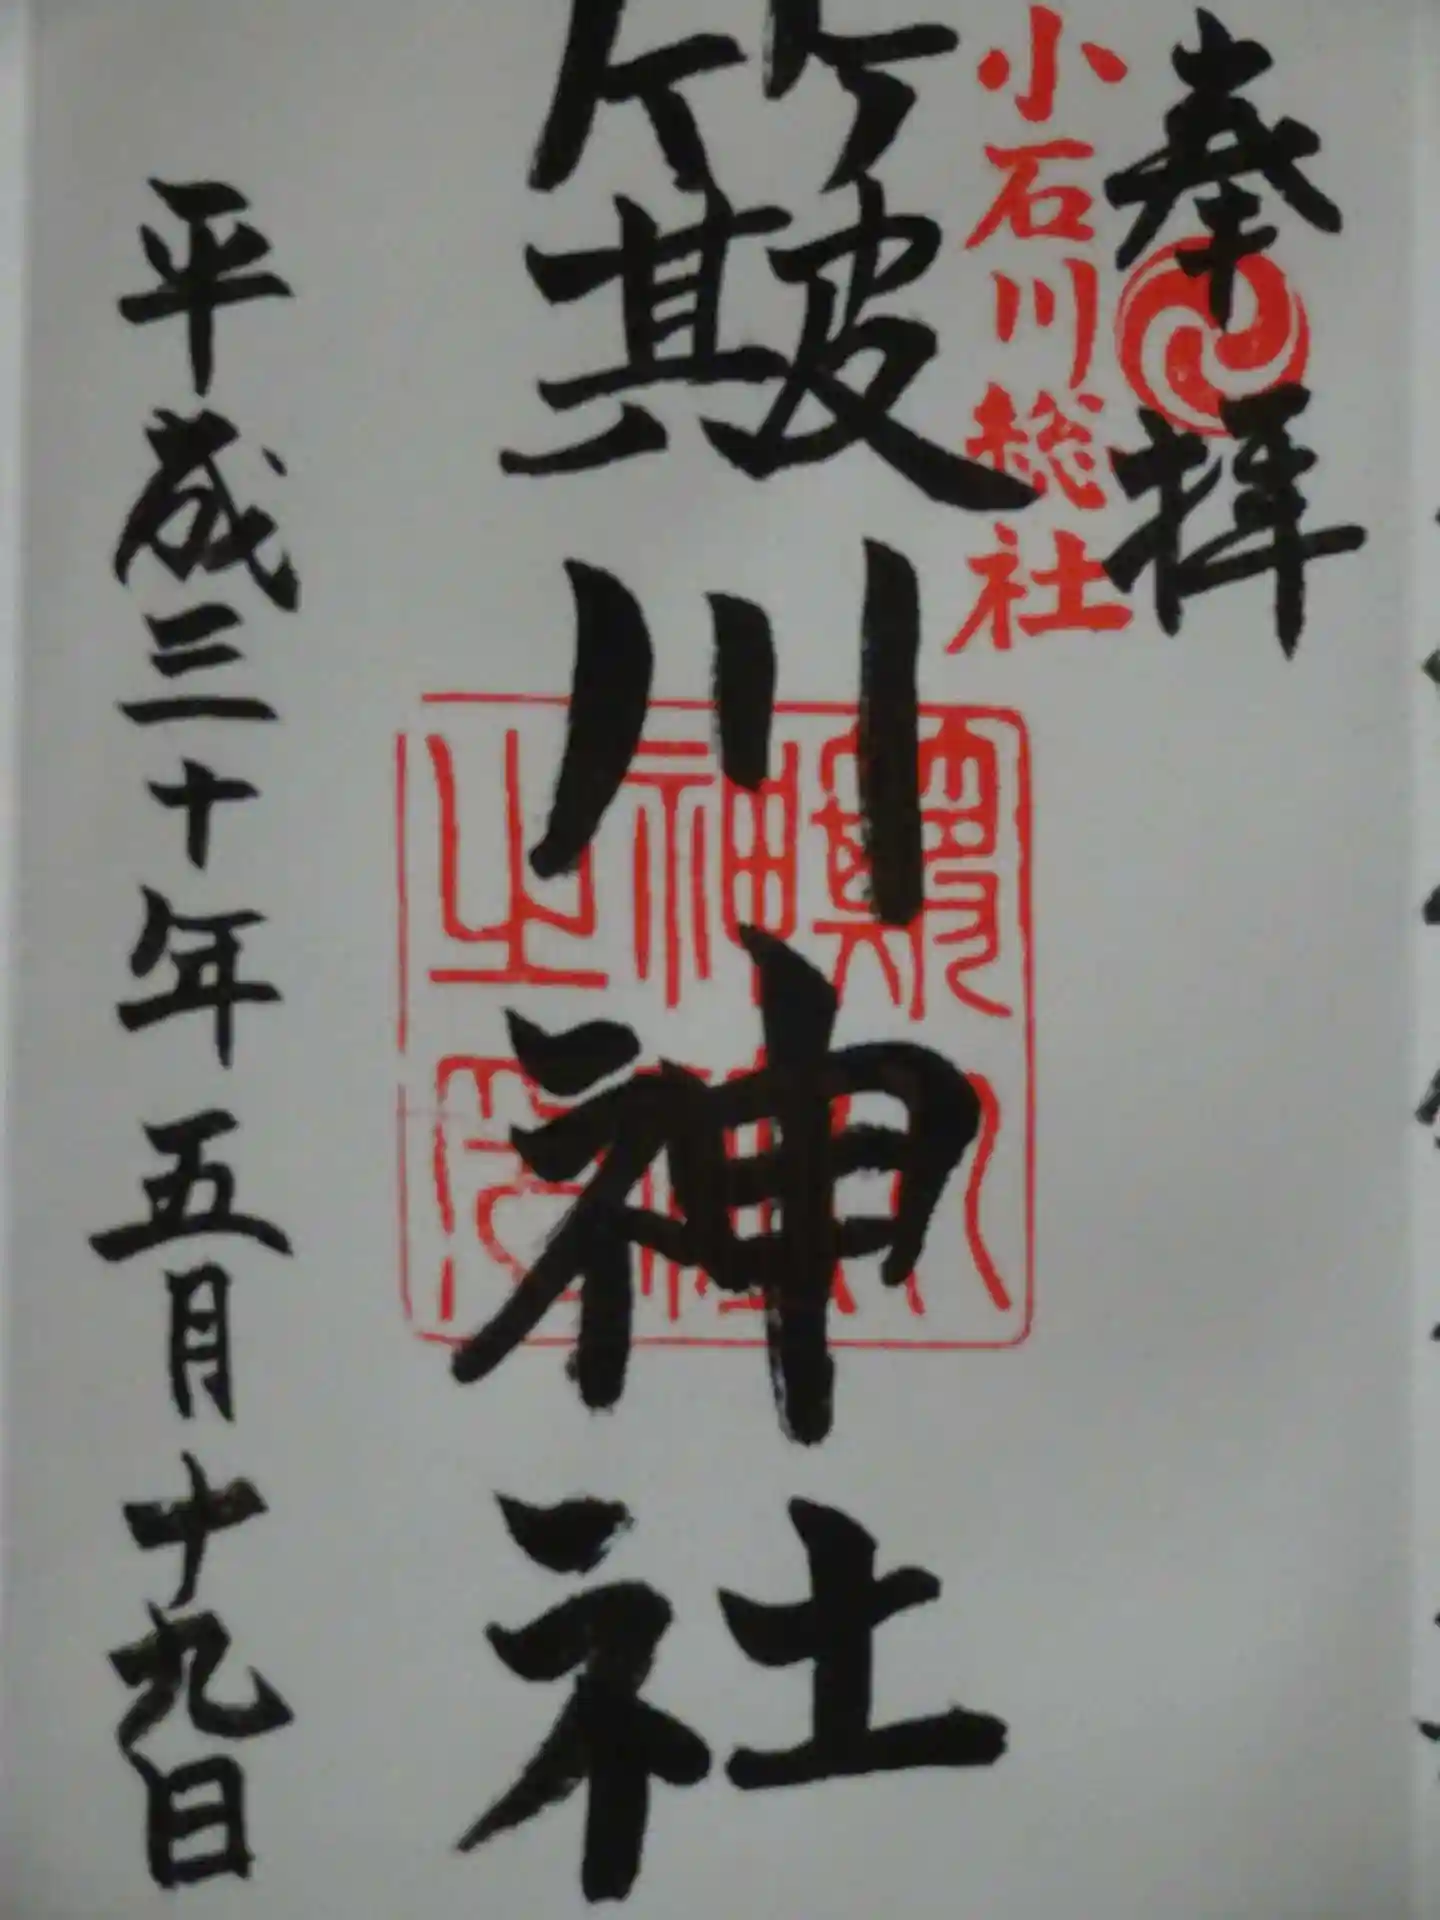 奉拝
小石川総社
簸川神社
簸川神社之印
平成三十年五月十九日